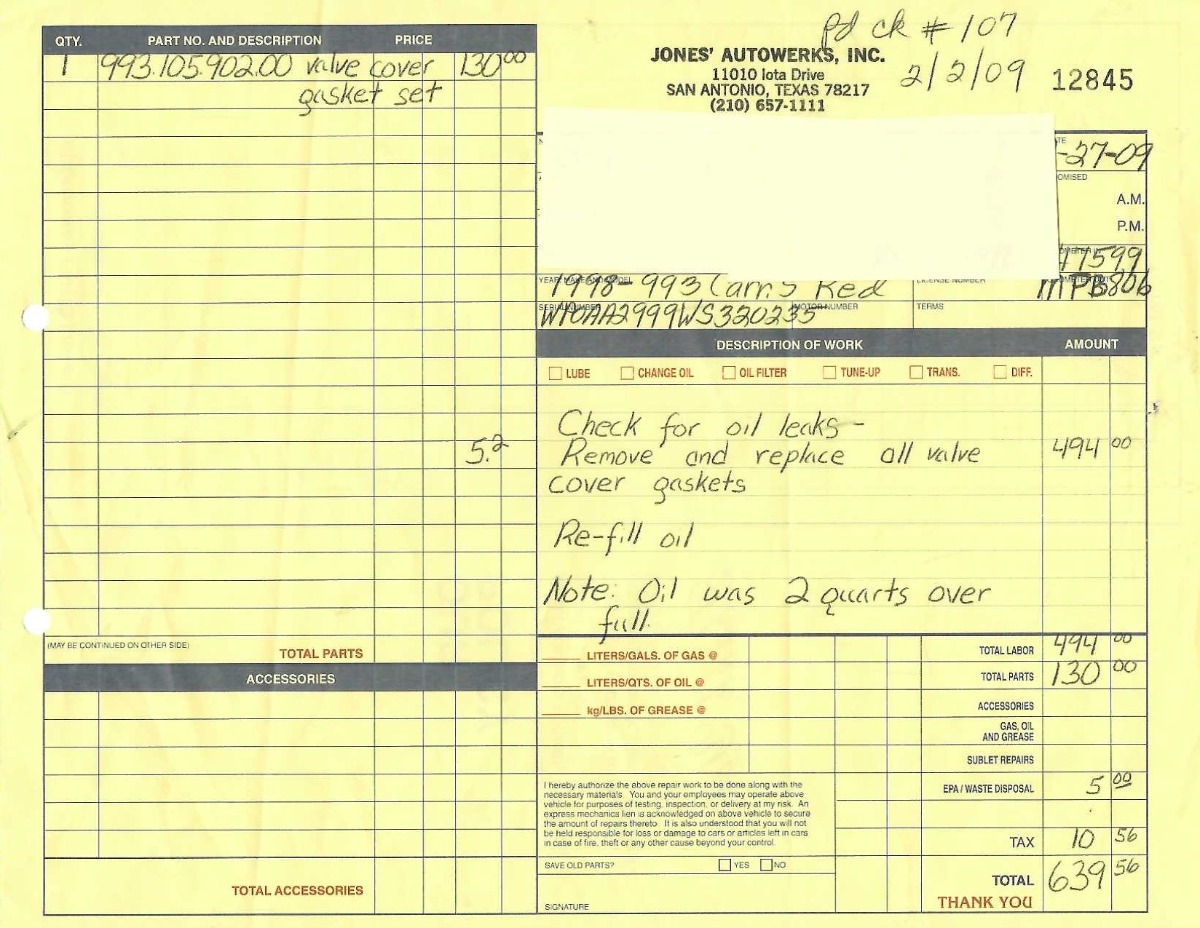 Pd ck # 107
2/2/09
JONES' AUTOWERKS, INC.
11010 Iota Drive
SAN ANTONIO, TEXAS 78217
(210) 657-1111
12845
QTY. PART NO. AND DESCRIPTION PRICE
1 993.105.902.00 valve cover 130 00
gasket set
-27-09
OMISED
A.M.
P.M.
7599
YEAR, MAKE AND MODEL LICENSE NUMBER
1998-993 Carr. S Red MPB806
SERIAL NUMBER MOTOR NUMBER TERMS
WP0AA2999WS320235
DESCRIPTION OF WORK AMOUNT
LUBE CHANGE OIL OIL FILTER TUNE-UP TRANS. DIFF.
Check for oil leaks -
5.2 Remove and replace all valve 494 00
cover gaskets
Re-fill oil
Note: Oil was 2 quarts over
full.
(MAY BE CONTINUED ON OTHER SIDE) TOTAL PARTS
ACCESSORIES
TOTAL ACCESSORIES
LITERS/GALS. OF GAS @
LITERS/QTS. OF OIL @
kg/LBS. OF GREASE @
TOTAL LABOR 494 00
TOTAL PARTS 130 00
ACCESSORIES
GAS, OIL
AND GREASE
SUBLET REPAIRS
EPA / WASTE DISPOSAL 5 00
TAX 10 56
TOTAL 639 56
THANK YOU
I hereby authorize the above repair work to be done along with the
necessary materials. You and your employees may operate above
vehicle for purposes of testing, inspection, or delivery at my risk. An
express mechanics lien is acknowledged on above vehicle to secure
the amount of repairs thereto. It is also understood that you will not
be held responsible for loss or damage to cars or articles left in cars
in case of fire, theft or any other cause beyond your control.
SAVE OLD PARTS? YES NO
SIGNATURE